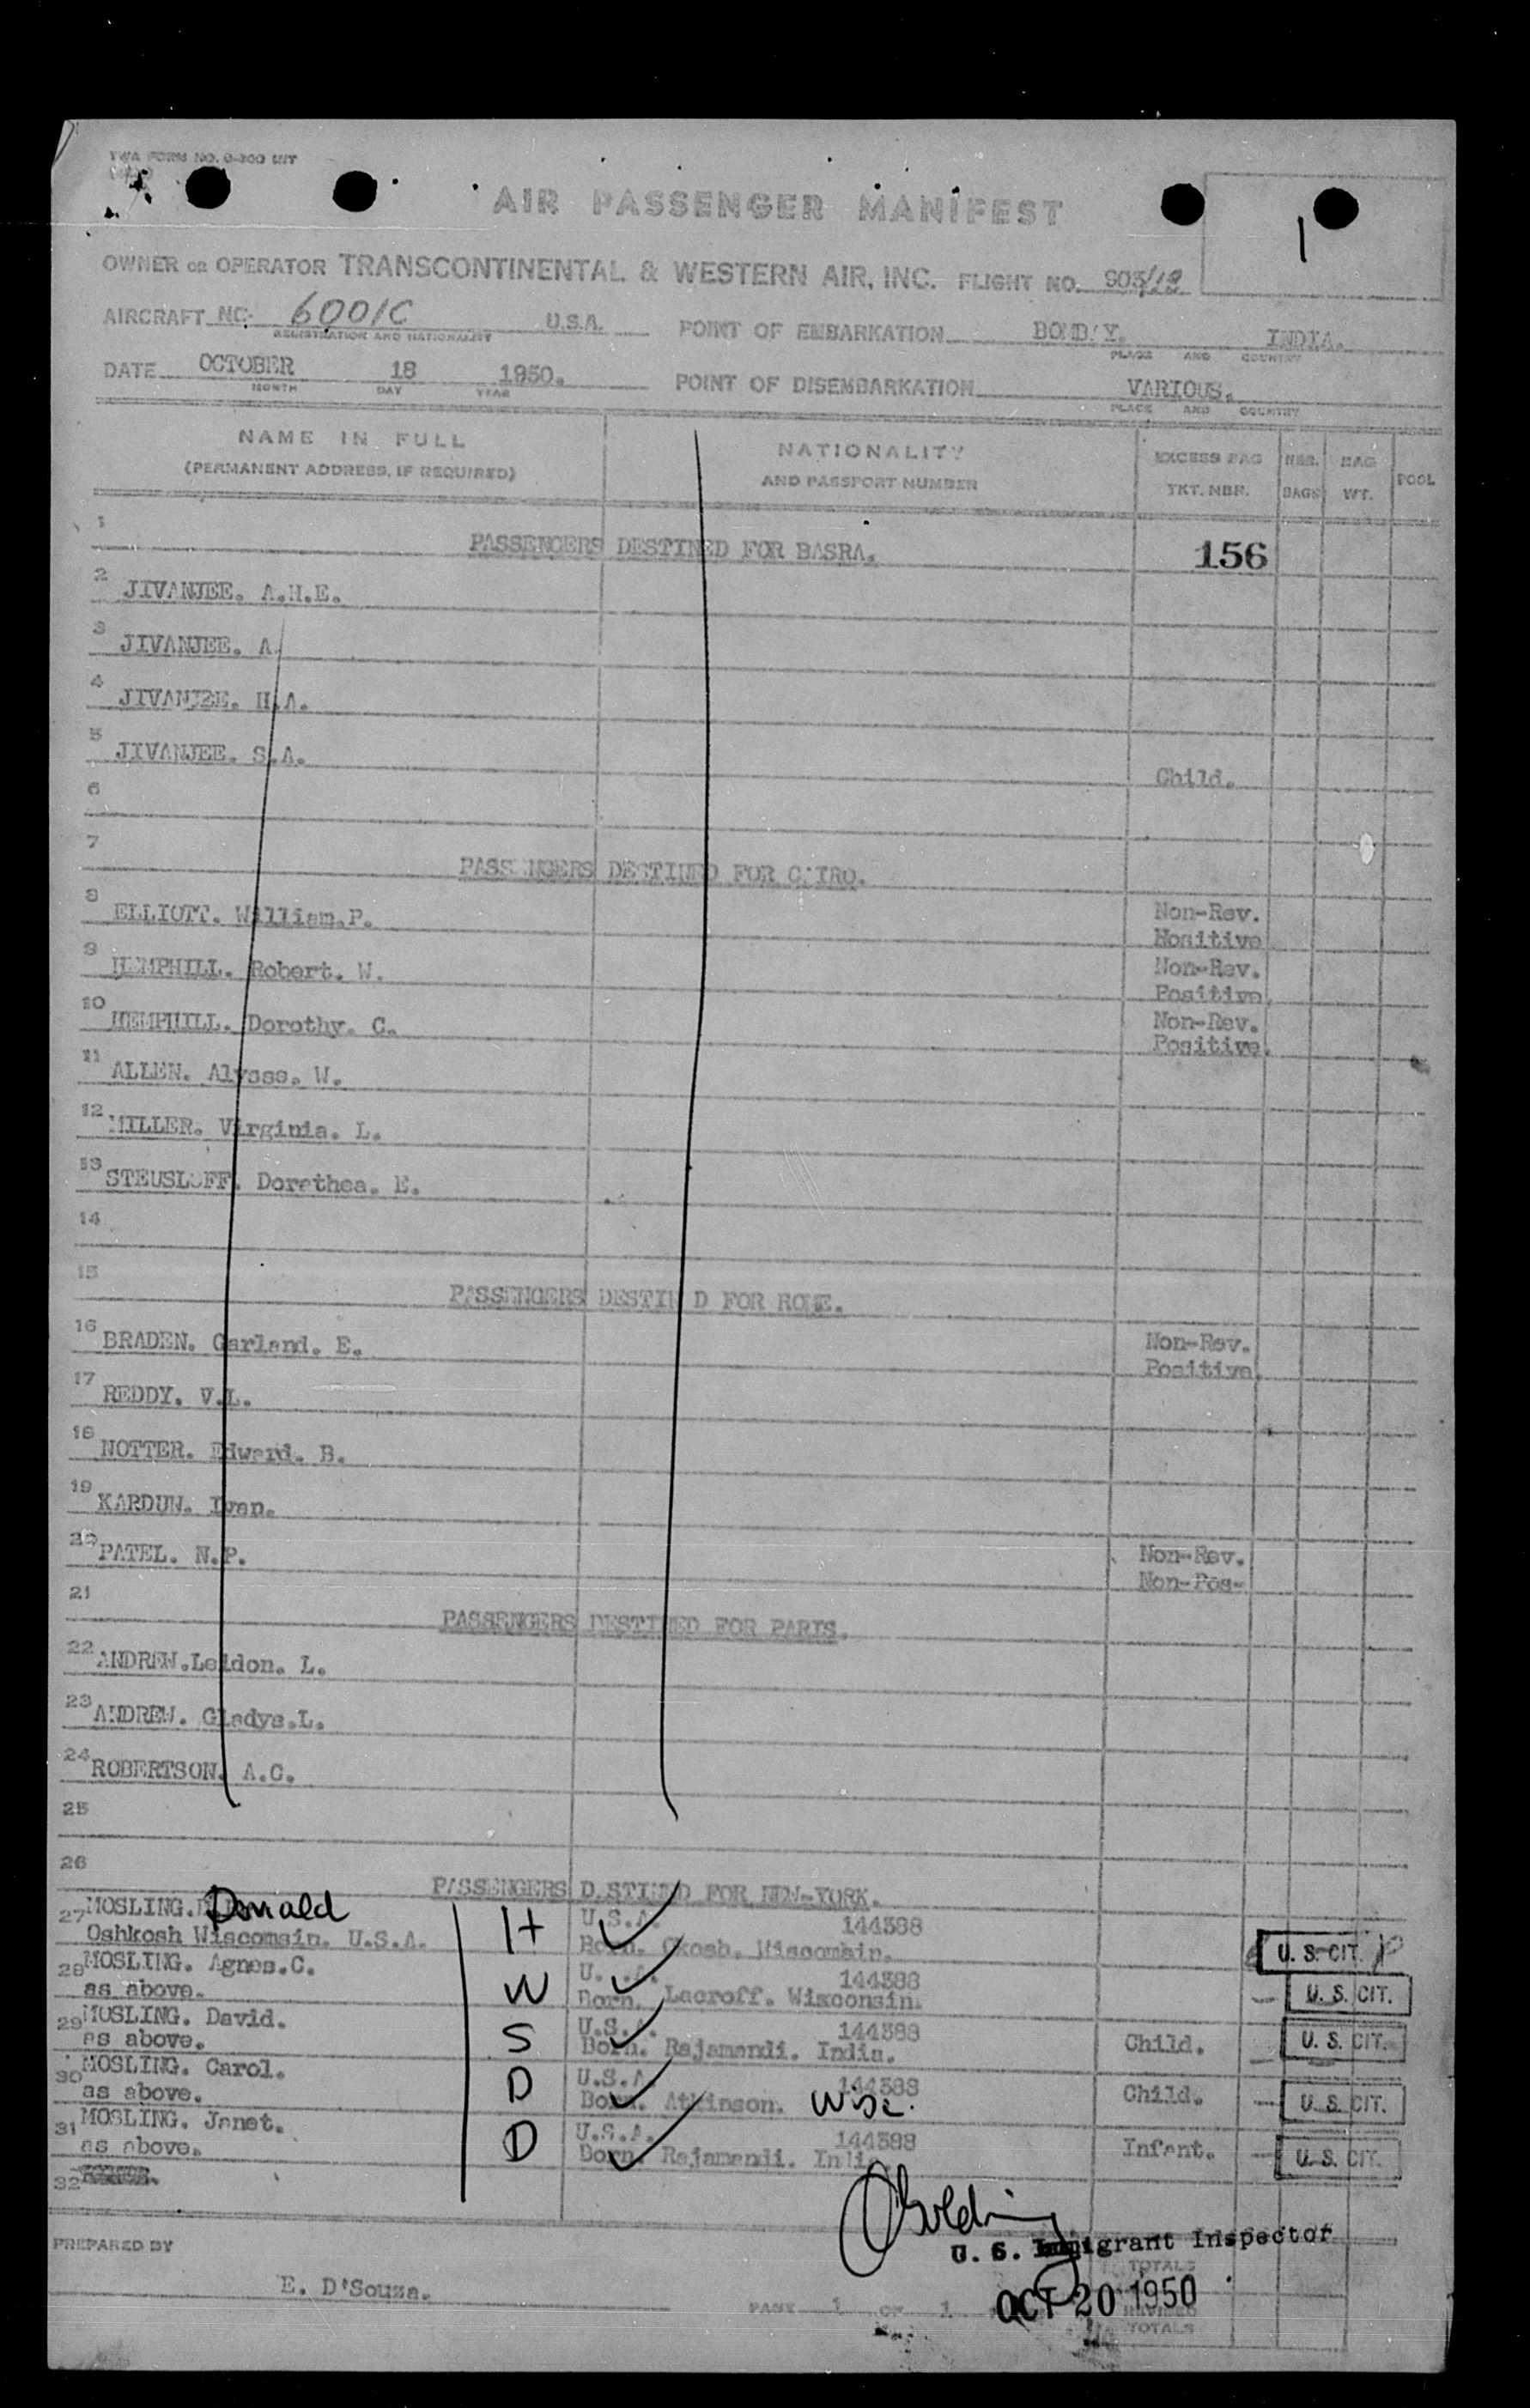 TWA FORM NO. 0-300 INT
AIR PASSENGER MANIFEST
1
OWNER OR OPERATOR TRANSCONTINENTAL & WESTERN AIR, INC. FLIGHT NO. 903/18
AIRCRAFT NC- 6001C U.S.A. POINT OF EMBARKATION BOMBAY. INDIA.
REGISTRATION AND NATIONALITY PLACE AND COUNTRY
DATE OCTOBER 18 1950. POINT OF DISEMBARKATION VARIOUS.
MONTH DAY YEAR PLACE AND COUNTRY
NAME IN FULL NATIONALITY EXCESS BAG NBR. BAG POOL
(PERMANENT ADDRESS, IF REQUIRED) AND PASSPORT NUMBER TKT. NBR. BAGS WT.
1 PASSENGERS DESTINED FOR BASRA. 156
2 JIVANJEE. A.H.E.
3 JIVANJEE. A.
4 JIVANJEE. H.A.
5 JIVANJEE. S.A. Child.
6
7 PASSENGERS DESTINED FOR CAIRO.
8 ELLIOTT. William.P. Non-Rev.
Positive
9 HEMPHILL. Robert. W. Non-Rev.
Positive.
10 HEMPHILL. Dorothy. C. Non-Rev.
Positive.
11 ALLEN. Alysse. W.
12 MILLER. Virginia. L.
13 STEUSLOFF. Dorethea. E.
14
15 PASSENGERS DESTINED FOR ROME.
16 BRADEN. Garland. E. Non-Rev.
Positive.
17 REDDY. V.L.
18 NOTTER. Edward. B.
19 KARDUN. Ivan.
20 PATEL. N.P. Non-Rev.
Non-Pos-
21 PASSENGERS DESTINED FOR PARIS.
22 ANDREW.Leldon. L.
23 ANDREW. Gladys.L.
24 ROBERTSON. A.C.
25
26 PASSENGERS DESTINED FOR NEW-YORK.
27 MOSLING. Donald H U.S.A. 144388
Oshkosh Wiscomsin. U.S.A. Born. Okosh. Wiscomsin. U. S. CIT.
28 MOSLING. Agnes.C. W U.S.A. 144388
as above. Born. Lacroff. Wisconsin. U. S. CIT.
29 MOSLING. David. S U.S.A. 144388
as above. Born. Rajamandi. India. Child. U. S. CIT.
30 MOSLING. Carol. D U.S.A. 144388
as above. Born. Atkinson. Wisc. Child. U. S. CIT.
31 MOSLING. Janet. D U.S.A. 144388
as above. Born. Rajamandi. India. Infant. U. S. CIT.
32
U. S. Immigrant Inspector
PREPARED BY TOTALS
E. D'Souza. PAGE 1 OF 1 OCT 20 1950
REVISED
TOTALS